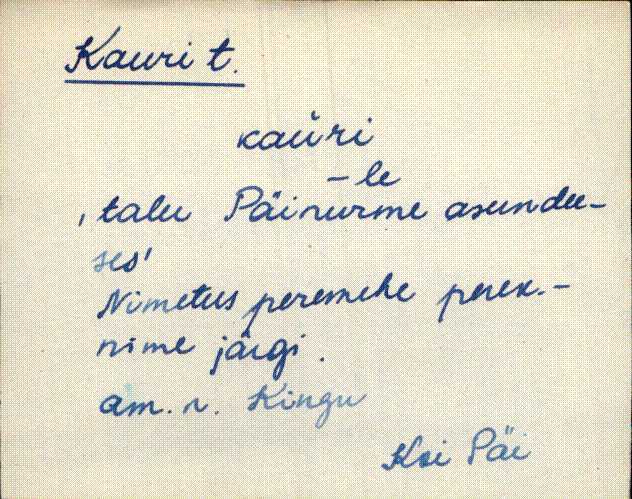 Kauri t.
kaùri
-le
, talu Päinurme asundu-
ses'
Nimetus peremehe perek.-
nime järgi.
am. n. Kingu
Koi Päi